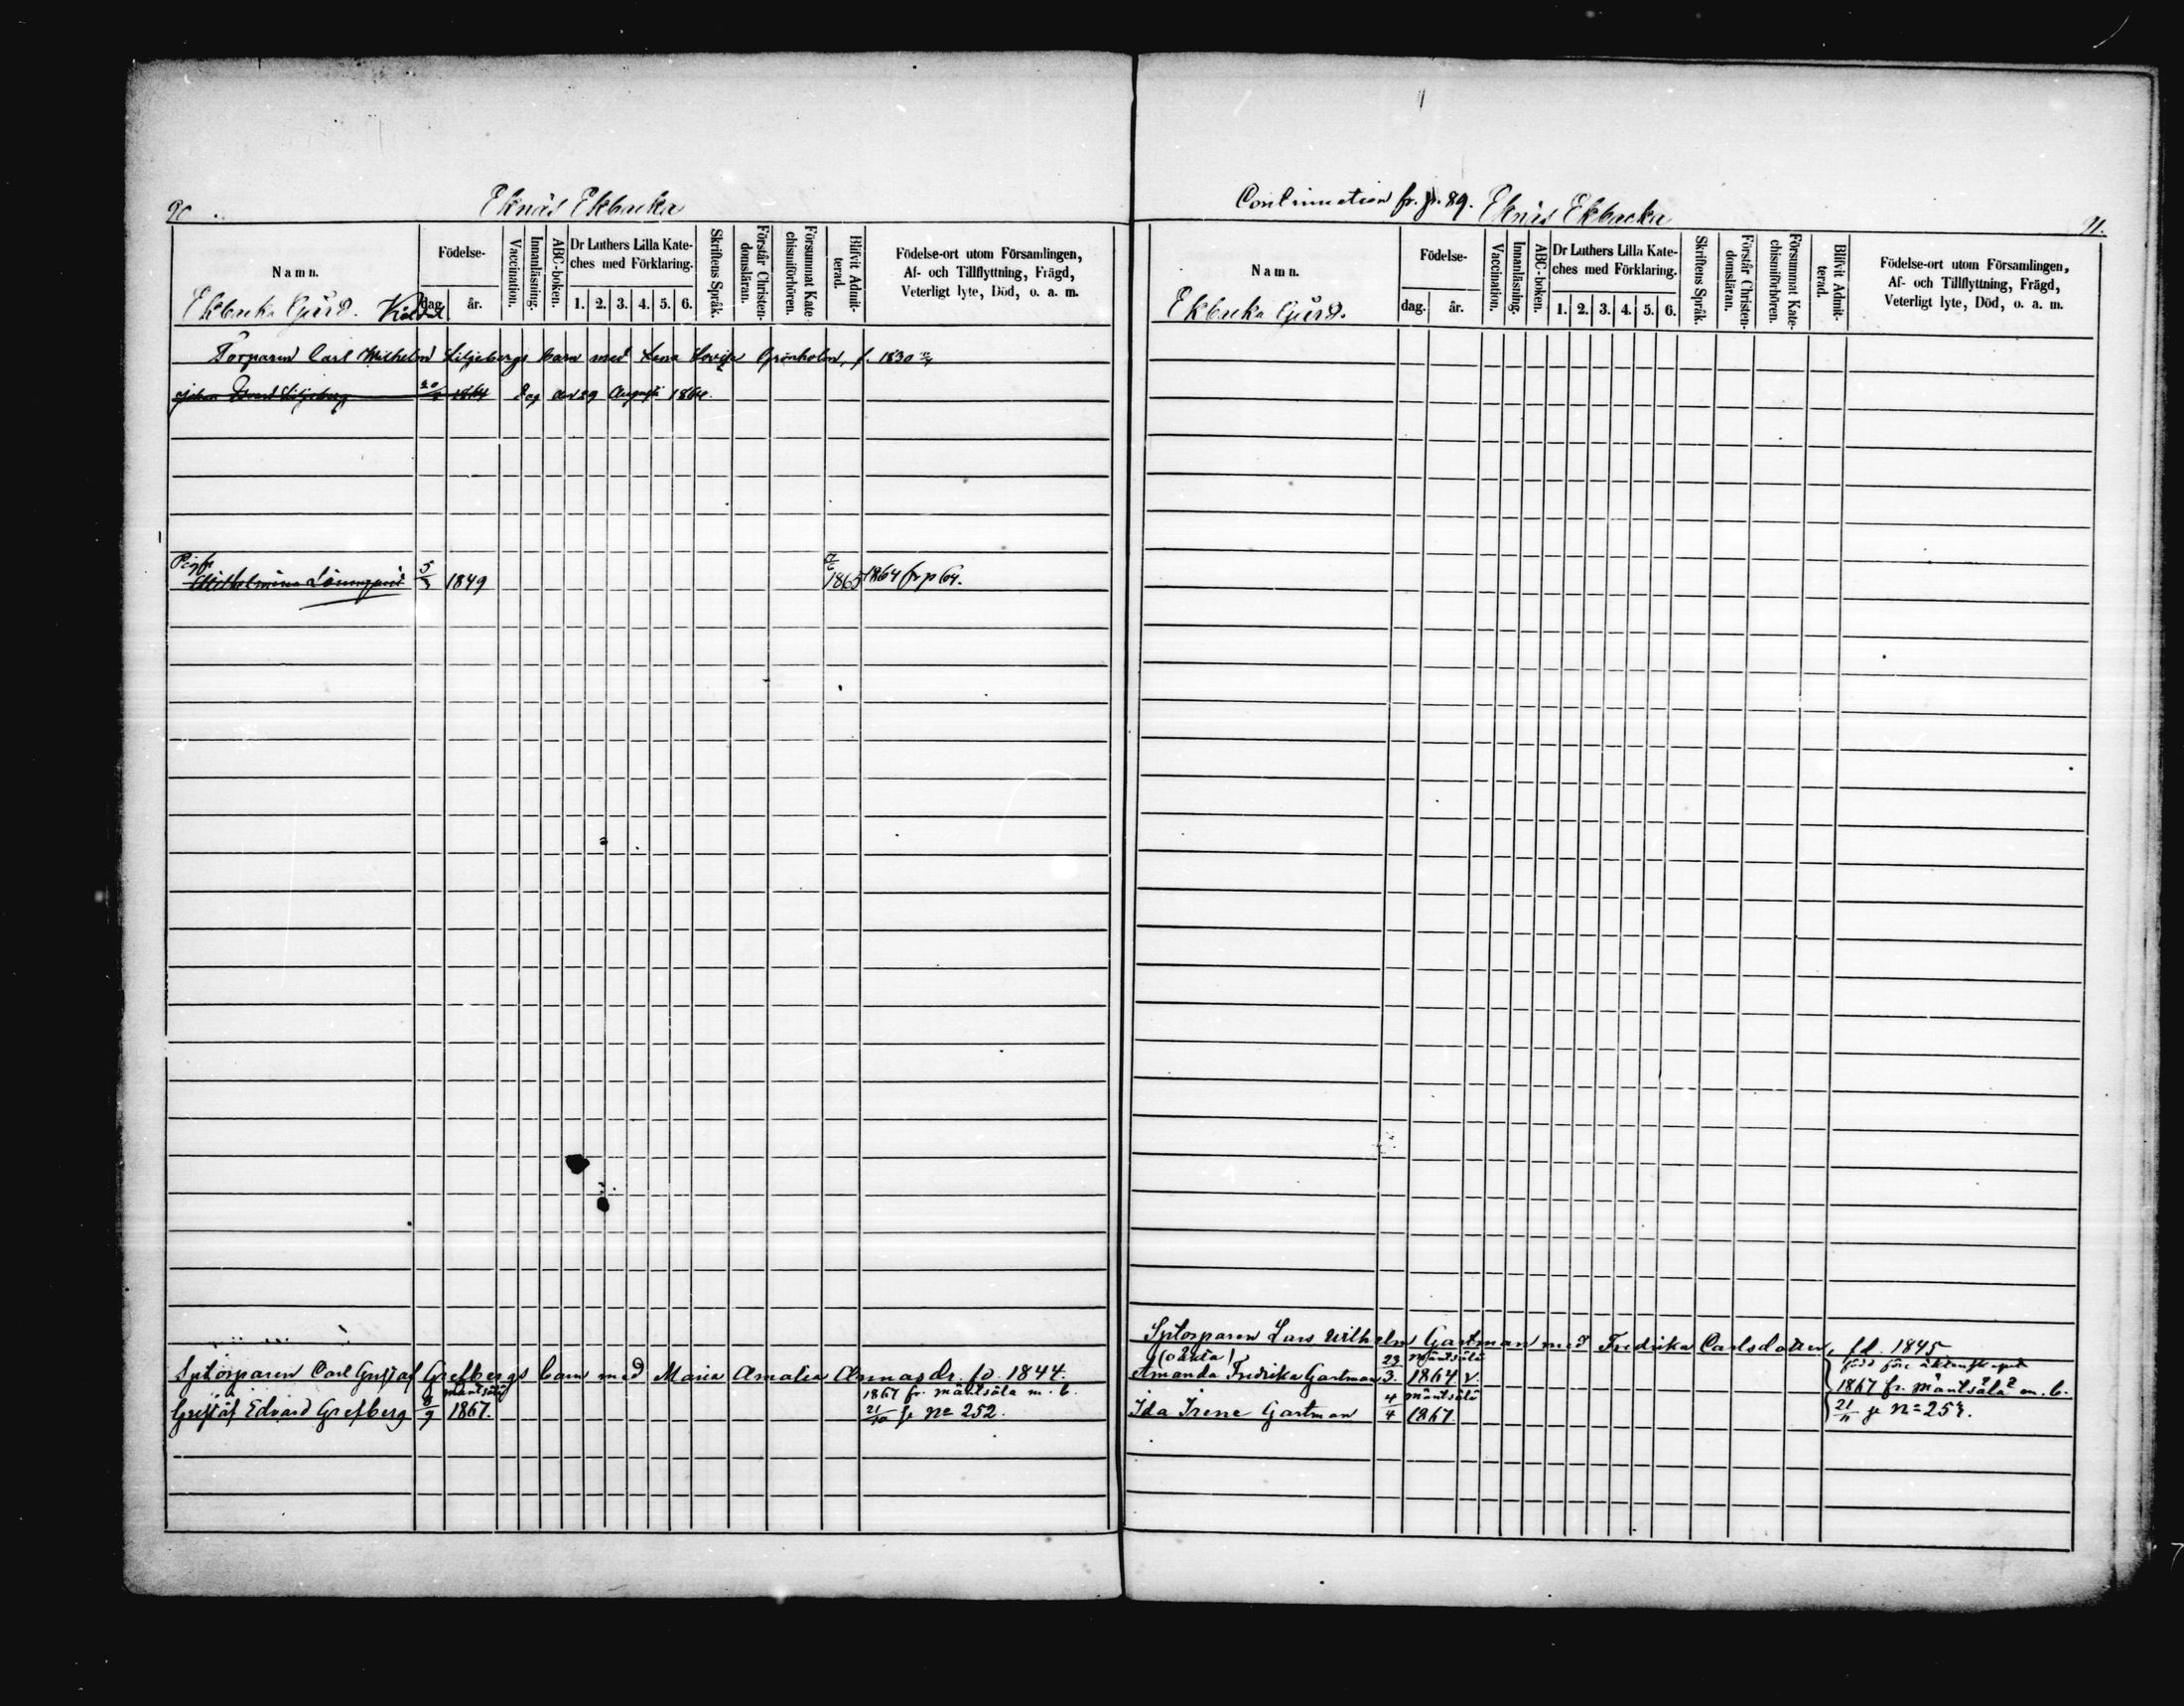 90
Eknäs Ekbacka
Namn.
Födelse-
dag.
år.
Vaccination.
Innanläsning.
ABC-boken.
Dr Luthers Lilla Kate-
ches med Förklaring.
1. 2. 3. 4. 5. 6.
Skriftens Språk.
Förstår Christen-
domsläran.
Försummat Kate
chismiförhören.
Blifvit Admit-
terad.
Födelse-ort utom Församlingen,
Af- och Tillflyttning, Frägd,
Veterligt lyte, Död, o. a. m.
Ekbacka Gård.
Torparen Carl Wilhelm Liljebergs barn med Lena Lovisa Grönholm, f. 1830
Johan Edvard Liljeberg 1864 Dog den 29 Augusti 1864.
Pigan
Wilhelmina 5/3 1849 1865 1864 fr p 64.
Sptorparen Carl Gustaf Grefbergs barn med Maria Amalia Annasdr. fd. 1844.
Mäntsälä
1867 fr. Mäntsälä m. b.
Gustaf Edvard Grefberg 8/9 1867. 21/10 se No 252.
Continuation fr. p. 89. Eknäs Ekbacka
91.
Namn.
Födelse-
dag.
år.
Vaccination.
Innanläsning.
ABC-boken.
Dr Luthers Lilla Kate-
ches med Förklaring.
1. 2. 3. 4. 5. 6.
Skriftens Språk.
Förstår Christen-
domsläran.
Försummat Kate-
chismiförhören.
Blifvit Admit-
terad.
Födelse-ort utom Församlingen,
Af- och Tillflyttning, Frägd,
Veterligt lyte, Död, o. a. m.
Ekbacka Gård.
Sptorparen Lars Wilhelm Gartman med Fredrika Carlsdotter, fd. 1845
(oäkta) Mäntsälä född före äktenskapet
Amanda Fredrika Gartman 29/3. 1864 v. 1867 fr. Mäntsälä m. b.
Mäntsälä
Ida Irene Gartman 4/4 1867 21/11 se No 252.